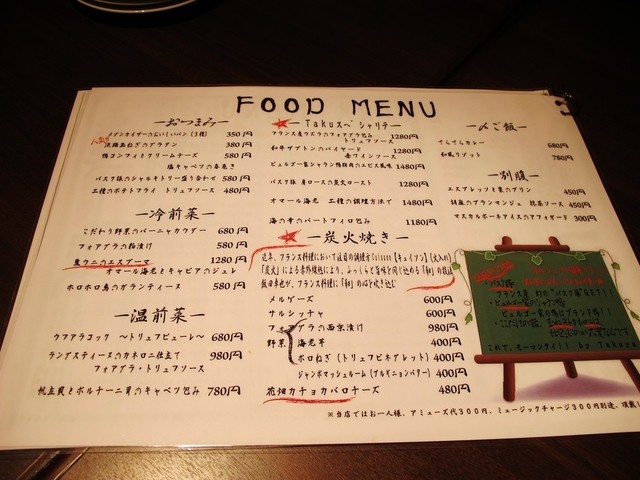 FOOD MENU
ーおつまみー
メゾンカイザーのおいしいパン(3種) 350円
淡路島ねぎのグラタン 380円
鴨コンフィとクリームチーズ 580円
塩キャベツの春巻き
バスク豚のシャルキトリー盛り合わせ 580円
三種のポテトフライ トリュフソース 480円
ー冷前菜ー
こだわり野菜のバーニャカウダー 680円
フォアグラの粕漬け 580円
生ウニのエスプーマ 1280円
オマール海老とキャビアのジュレ
ホロホロ鳥のガランティーヌ 580円
ー温前菜ー
ウフアラコック ～トリュフピューレ～ 680円
ラングスティーヌのカネロニ仕立て 980円
フォアグラ・トリュフソース
帆立貝とポルチーニ茸のキャベツ包み 780円
ーTakuスペシャリテー
フランス産ウズラのフォアグラ包み 1280円
トリュフソース
和牛ザブトンのバイヤード 1280円
赤ワインソース
ビュルゴー家シャラン鴨胸肉のエピス風味 1480円
バスク豚 肩ロースの炭火ロースト 1280円
オマール海老 二種の調理方法で 1480円
海の幸のパートフィロ包み 1180円
ー炭火焼きー
近年、フランス料理において注目の調理法【キュイソン】(火入れ)
「炭火」による赤外線により、ふっくらと旨味を閉じ込める「和」の技法
フランス料理に「和」の心を吹き込む
メルゲーズ 600円
サルシッチャ 600円
フォアグラの西京漬け 980円
野菜 海老芋 400円
ポロねぎ(トリュフビネグレット) 400円
ジャンボマッシュルーム(ブルギニョンバター) 400円
花畑カチョカバロチーズ 480円
ー〆ご飯ー
すらすらカレー 680円
和風リゾット 780円
ー別腹ー
エスプレッソと栗のプリン 450円
胡麻のブランマンジェ 抹茶ソース 450円
マスカルポーネアイスのアフォガード 300円
※当店ではお一人様、アミューズ代300円、ミュージックチャージ300円別途、頂戴